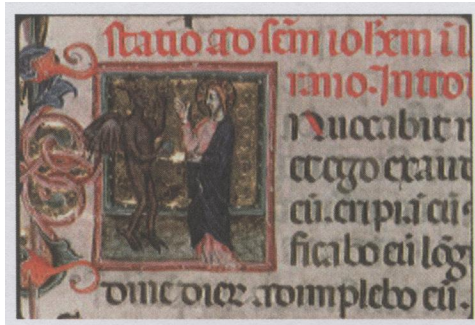 statio ad scm ioħem il
rano. Intro
Nuocabit i
et ego exaut
eū. eripiā eū
ficabo eū lōg
dine dier adimplebo eū.